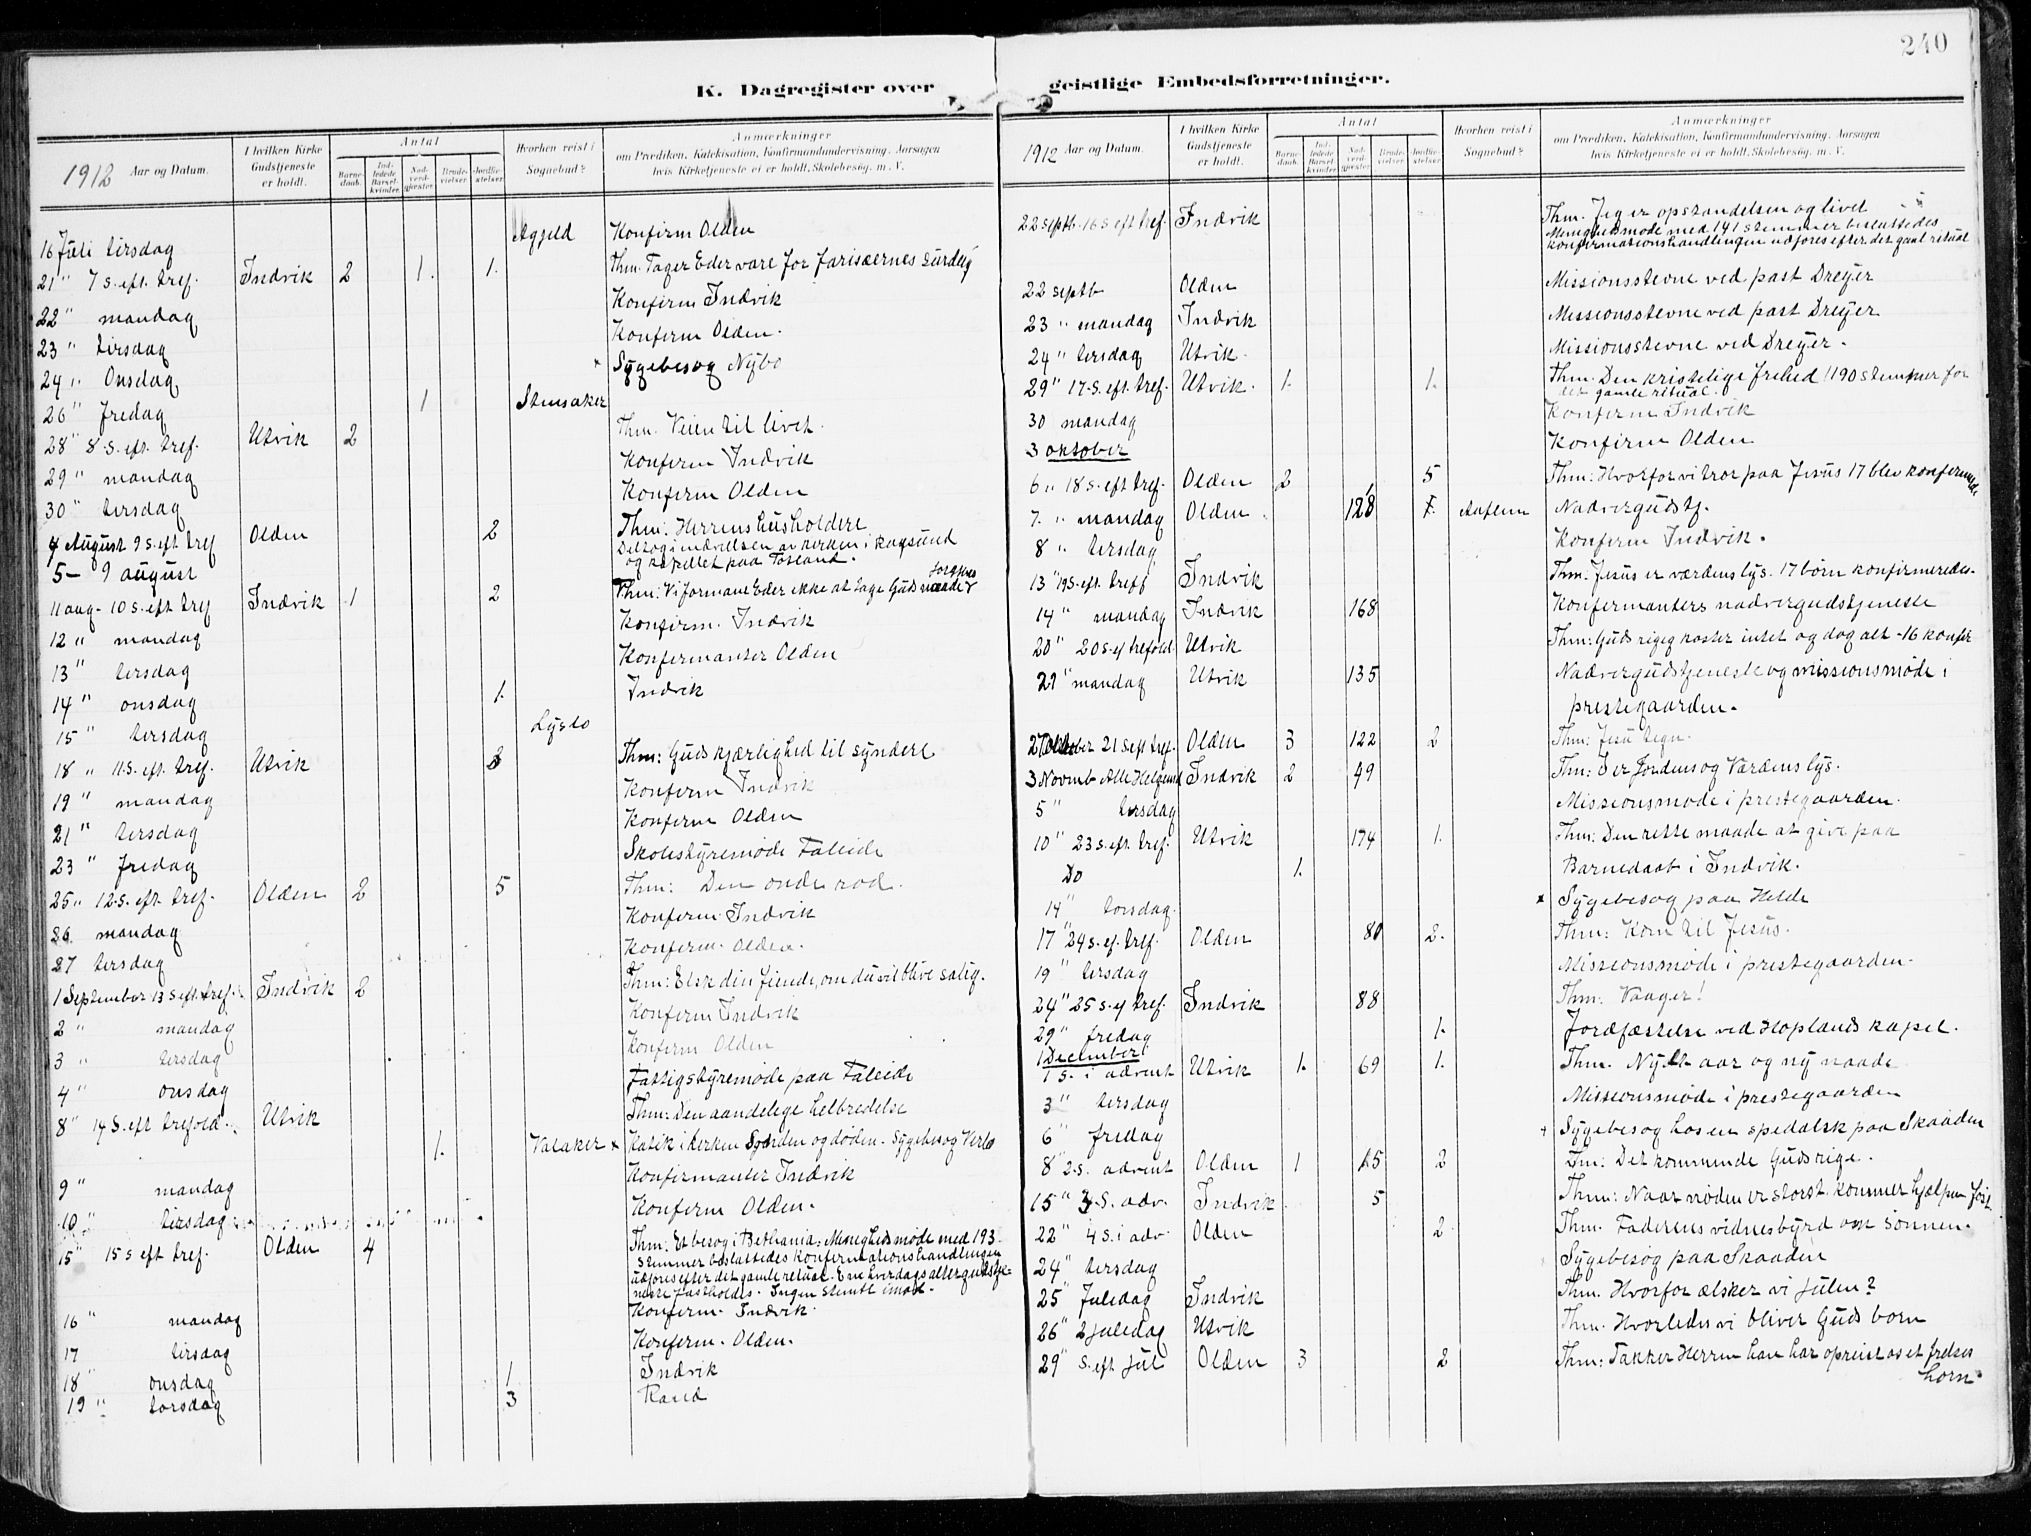 240
K. Dagregister over
geistlige Embedsforretninger.
1912 Aar og Datum.
I hvilken Kirke Gudstjeneste er holdt.
Antal
Barne-daab.
Ind-ledede Barsel-kvinder.
Nad-verd-gjester.
Brude-vielser.
Jordfæ-stelser.
Hvorhen reist i Sognebud?
Anmærkninger
om Prædiken, Katekisation, Konfirmandundervisning, Aarsagen
hvis Kirketjeneste ei er holdt, Skolebesøg. m. V.
16 Juli tirsdag Konfirm Olden
21 " 7 s. eft. tref. Indvik 2 1. 1. Thm. Tager Eder vare for farisæernes surdeig
22 " mandag Konfirm Indvik
23 " tirsdag Konfirm Olden.
24 " Onsdag × Sygebesøg Nybø
26 " fredag 1 Stensaker
28 " 8 s. eft. tref. Utvik 2 Thm. Veien til livet.
29 " mandag Konfirm Indvik
30 " tirsdag Konfirm Olden
4 August 9 s. eft tref Olden 2 Thm: Herrens husholdere
5 - 9 august Deltog i indvielsen av kirken i
og kapellet paa
11 aug - 10 s. eft tref Indvik 1 2 Thm: Vi formane Eder ikke at tage Guds naade forgjeves
12 " mandag Konfirm. Indvik
13 " tirsdag Konfirmanter Olden
14 " onsdag 1. Indvik
15 " tirsdag
18 " 11 s. eft. tref. Utvik 3 Thm: Guds kjærlighed til syndere
19 " mandag Konfirm Indvik
21 " tirsdag Konfirm Olden
23 " fredag Skolestyremøde Faleide
25 " 12 s. eft. tref. Olden 2 5 Thm: Den onde rod.
26 mandag Konfirm Indvik
27 tirsdag Konfirm. Olden.
1 September 13 s eft. tref. Indvik 2 Thm: Elsk din fiende, om du vil blive salig.
2 " mandag Konfirm Indvik
3 " tirsdag Konfirm Olden
4 " onsdag Fattigstyremøde paa Faleide
8 " 14 S. eft trefold. Utvik Thm: Den aandelige helbredelse
1. Valaker × Katik i kirken Synden og døden. Sygebesøg
9 " mandag Konfirmanter Indvik
10 " tirsdag Konfirm Olden.
15 " 15 s eft tref. Olden 4 Thm: Et besøg i Bethania: Menighedsmøde med 193
stemmer besluttedes konfirmationshandlingen
udføres efter det gamle ritual. Ene hverdagsaltergudstje-
neste fastholdes. Ingen stemte imod.
16 " mandag Konfirm. Indvik.
17 tirsdag Konfirm. Olden.
18 " onsdag 1 Indvik
19 " torsdag 3 Rand
1912 Aar og Datum.
I hvilken Kirke Gudstjeneste er holdt.
Antal
Barne-daab.
Ind-ledede Barsel-kvinder.
Nad-verd-gjester.
Brude-vielser.
Jordfæ-stelser.
Hvorhen reist i Sognebud?
Anmærkninger
om Prædiken, Katekisation, Konfirmandundervisning, Aarsagen
hvis Kirketjeneste ei er holdt, Skolebesøg. m. V.
22 septb. 16 s eft tref. Indvik Thm. Jeg er opstandelsen og livet
Menighedsmøde med 141 stemmer besluttedes
konfirmationshandlingen udføres efter det gaml ritual
22 septb Olden Missionsstevne ved past Dreyer
23 " mandag Indvik Missionsstevne ved past Dreyer
24 " tirsdag Utvik. Missionsstevne ved Dreyer.
29 " 17 s. eft. tref. Utvik. 1. 1. Thm. Den kristelige frihed 1190 stemmer for
det gamle ritual.
30 mandag Konfirm Indvik
3 oktober Konfirm Olden
6 " 18 s. eft tref. Olden 2 5 Thm: Hvorfor vi tror paa Jesus 17 blev konfirmede
7. " mandag Olden. 128 Nadvergudstj.
8 " tirsdag Konfirm Indvik.
13 " 19 s. eft. treff Indvik Thm: Jesus er værdens lys. 17 børn konfirmeredes
14 " mandag Indvik 168 Konfirmanters nadvergudstjeneste
20 " 20 s. ef trefold. Utvik Thm: Guds rige koster intet og dog alt - 16 konfir
21 " mandag Utvik 135 Nadvergudstjeneste og missionsmøde i
prestegaarden.
27 oktober 21 s eft tref. Olden 3 122 2 Thm: Jesu tegn.
3 Novemb Alle Helgensd Indvik 2 49 Thm: I er Jordens og Værdens lys.
5 " tirsdag Missionsmøde i prestegaarden.
10 " 23 s. eft. tref. Utvik 174 1. Thm: Den rette maade at give paa
Do 1. Barnedaab i Indvik.
14 " torsdag. × Sygebesøg paa Helde
17 " 24 s. ef. tref. Olden 80 2. Thm: Kom til Jesus.
19 " tirsdag Missionsmøde i prestegaarden.
24 " 25 s. ef tref. Indvik 88 Thm: Vaager!
29 " fredag 1. Jordfæstelse ved Hoplands kapel.
1 December
1 s. i advent Utvik 1. 69 1. Thm. Nyt aar og ny naade
3 " tirsdag Missionsmøde i prestegaarden
6 " fredag + Sygebesøg hos en spedalsk paa Skaaden
8 " 2 s. advent Olden 1 15 2 Tm: Det kommende Guds rige.
15 " 3 S. adv. Indvik 5 Thm: Naar nøden er størst kommer hjælpen
22 " 4 S. i adv. Olden 2 Thm. Faderens vidnesbyrd om sønnen.
24 " tirsdag Sygebesøg paa Skaaden
25 " Juledag Indvik Thm. Hvorfor elsker vi julen?
26 " 2 juledag Utvik Thm. Hvorledes vi bliver Guds børn
29 " S. eft jul Olden 3 2 Thm: Takker Herren han har opreist os et frelses
horn.